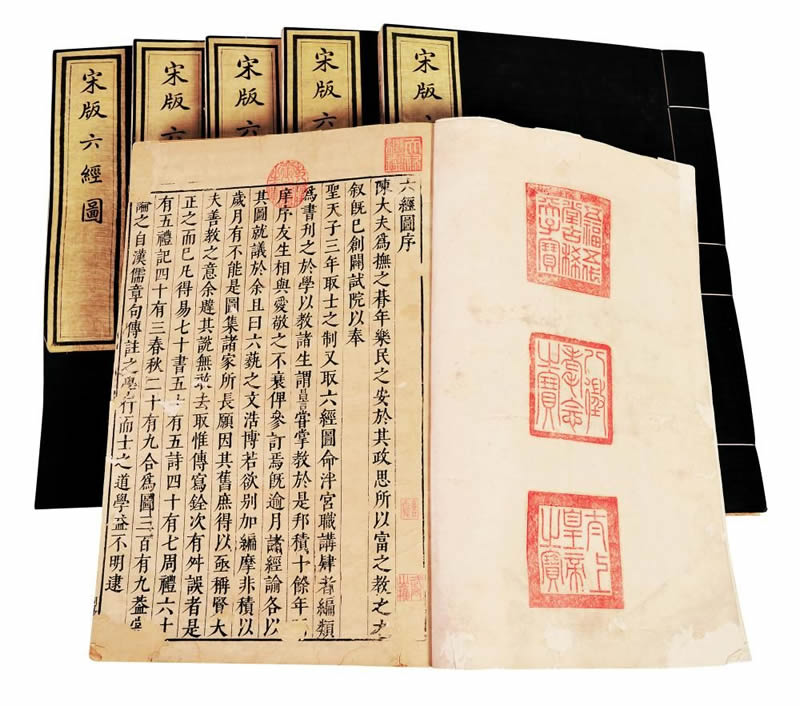 宋版六經圖
宋版六
宋版六
宋版六
宋版
五福五代堂古稀天子寶
八徵耄念之寶
太上皇帝之寶
六經圖序
陳大夫爲撫之朞年樂民之安於其政思所以富之教之
叙旣已創闢試院以奉
聖天子三年取士之制又取六經圖命泮宮職講肄者編類
爲書刊之於學以教諸生謂昌言嘗掌教於是邦積十餘年
庠序友生相與愛敬之不衰俾參訂焉旣逾月諸經論各以
其圖就議於余且曰六藝之文浩博若欲别加編摩非積以
歲月有不能是圖集諸家所長願因其舊庶得以亟稱賢大
夫善教之意余韙其說無敢去取惟傳寫銓次有舛誤者是
正之而已凡得易七十書五十有五詩四十有七周禮六十
有五禮記四十有三春秋二十有九合爲圖三百有九葢嘗
論之自漢儒章句傳註之學行而士之道學益不明逮